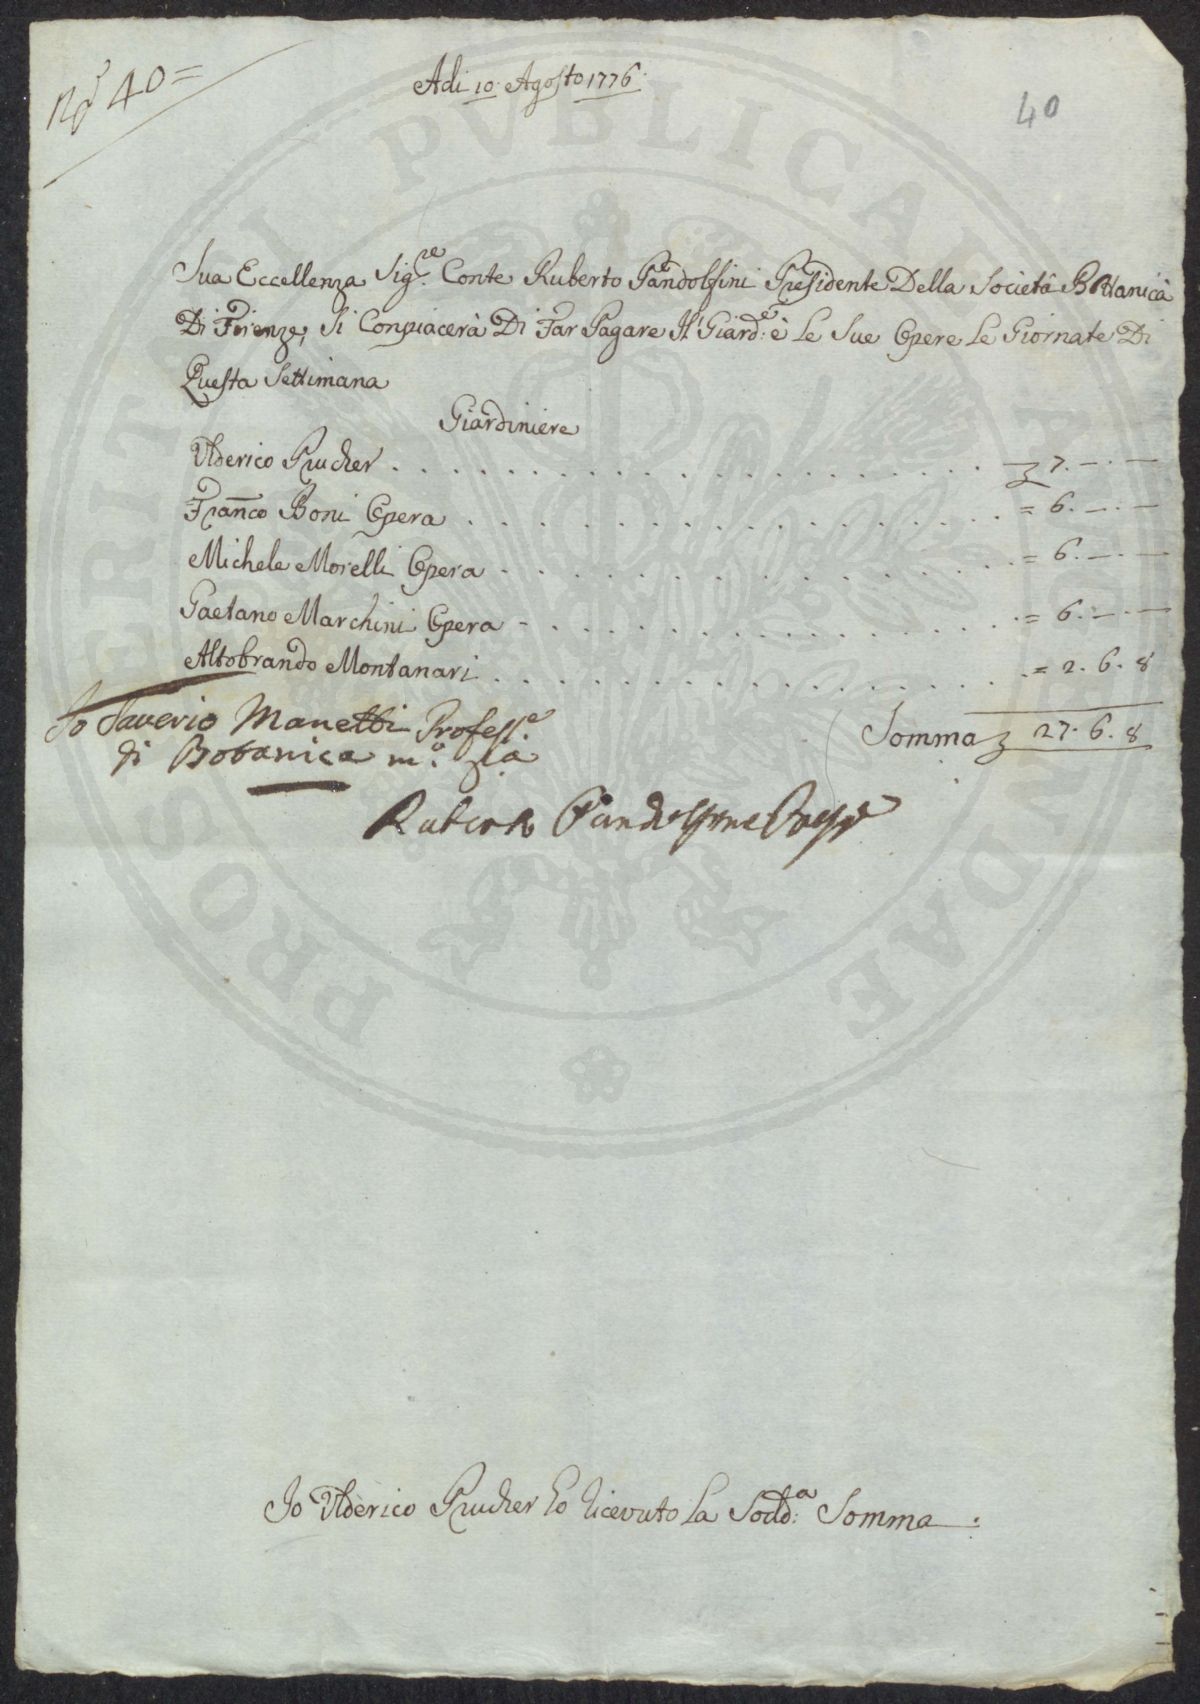 No. 40=
Adi 10: Agosto 1776:
40
Sua Eccellenza Sig.re Conte Ruberto Pandolfini Presidente Della Società Bottanica
Di Firenze, Si Conpiacerà Di Far Pagare Il Giard:e è Le Sue Opere Le Giornate Di
Questa Settimana
Giardiniere
Ulderico Prucher . . . . . . . . . . . . . . . . . 7. — . —
Franco Boni Opera . . . . . . . . . . . . . . = 6. — . —
Michele Morelli Opera - . . . . . . . . . . . . = 6. — . —
Gaetano Marchini Opera - . . . . . . . . . . . = 6. — . —
Altobrando Montanari . . . . . . . . . . . . . = 2. 6. 8
Somma 27. 6. 8
Io Saverio Manetti Profess.e
di Botanica m.o pa
Ruberto Pandolfini Presid
Io Ulderico Prucher ho ricevuto La Sodd:a Somma .
PROSPERITATI PVBLICAE AVGENDAE